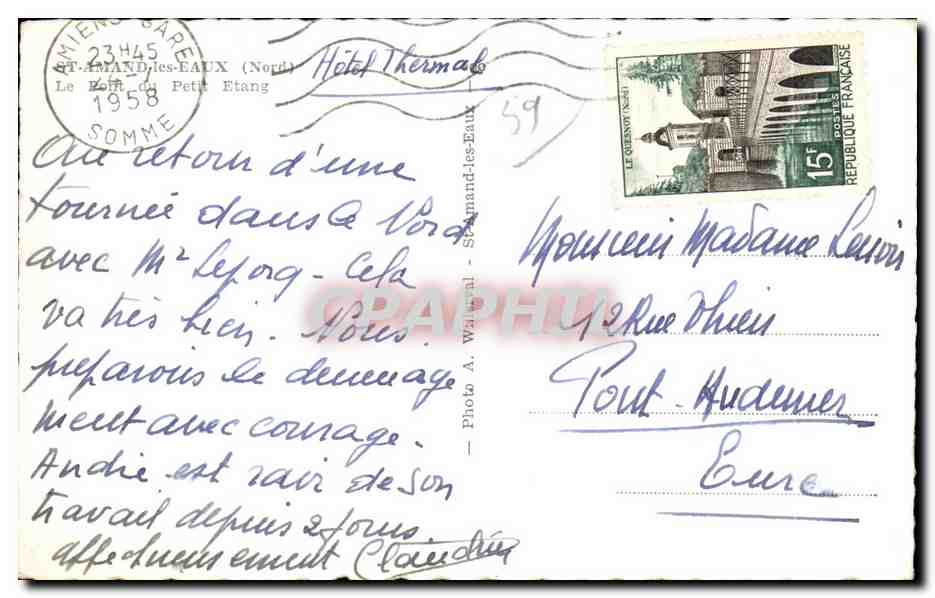 AMIENS GARE
23H45
1958
SOMME
ST-AMAND-les-EAUX (Nord)
Le Pont du Petit Etang
Hôtel Thermal
59
LE QUESNOY (NORD)
15F
POSTES
REPUBLIQUE FRANÇAISE
Au retour d'une
tournée dans le Nord
avec Mr - Cela
va très bien. Nous
preparons le demenage
ment avec courage.
André est ravi de son
travail depuis 2 jours
affectueusement Claudine
— Photo A. - St-Amand-les-Eaux —
CPAPHIL
Monsieur Madame
12 Rue Thiers
Pont-Audemer
Eure